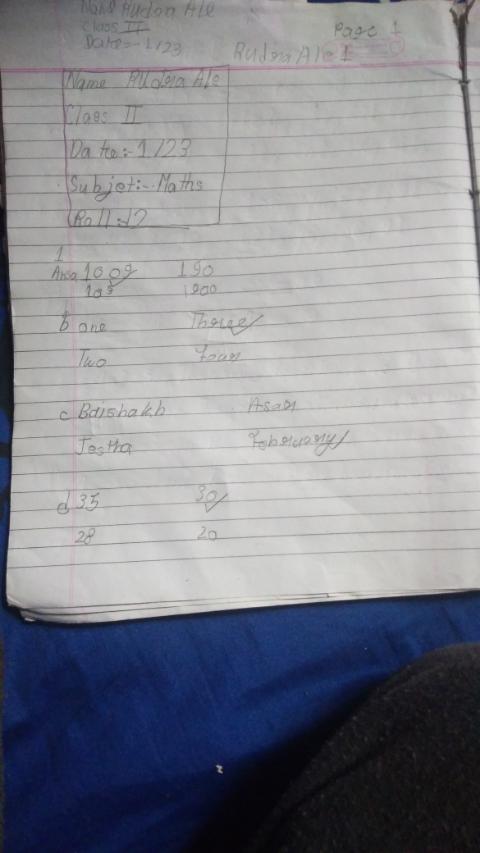 Name Rudra Ale
Class II
Date:- 1/23
Page 1
Rudra Ale 1
Name Rudra Ale
Class II
Date:- 1/23
Subjet:- Maths
Roll:12
1
Ans 1009 190
109 1900
b one Three
Two Four
c Baishakh Asar
Jestha February
d 35 30
28 20